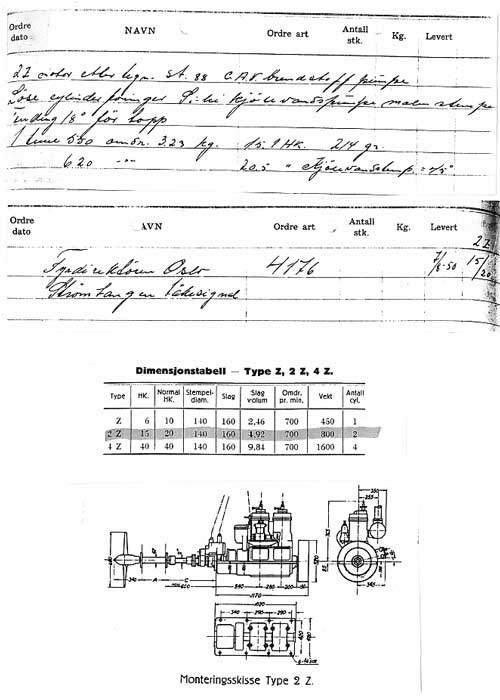 Ordre dato NAVN Ordre art Antall stk. Kg. Levert
2Z motor etter tegn. St. 88 C.A.V. brendstoff pumpe
Löse cylinder foringer kjölevandspumpe
tending 18° för topp
1 time 550 omdr. 3.23 kg. 15.1 HK. 214 gr.
620 -"- 20.5 "
Ordre dato AVN Ordre art Antall stk. Kg. Levert
2Z
Fyrdirektören Oslo 4176 7/8-50 15/20
Strömtangen tåkesignal
Dimensjonstabell — Type Z, 2 Z, 4 Z.
Type HK. Normal HK. Stempel-diam. Slag Slag volum Omdr. pr. min. Vekt Antall cyl.
Z 6 10 140 160 2,46 700 450 1
2 Z 15 20 140 160 4,92 700 800 2
4 Z 40 40 140 160 9,84 700 1600 4
350
255
340 A C
600 340 290 200
1170
1020
340 290 290
345
Monteringsskisse Type 2 Z.